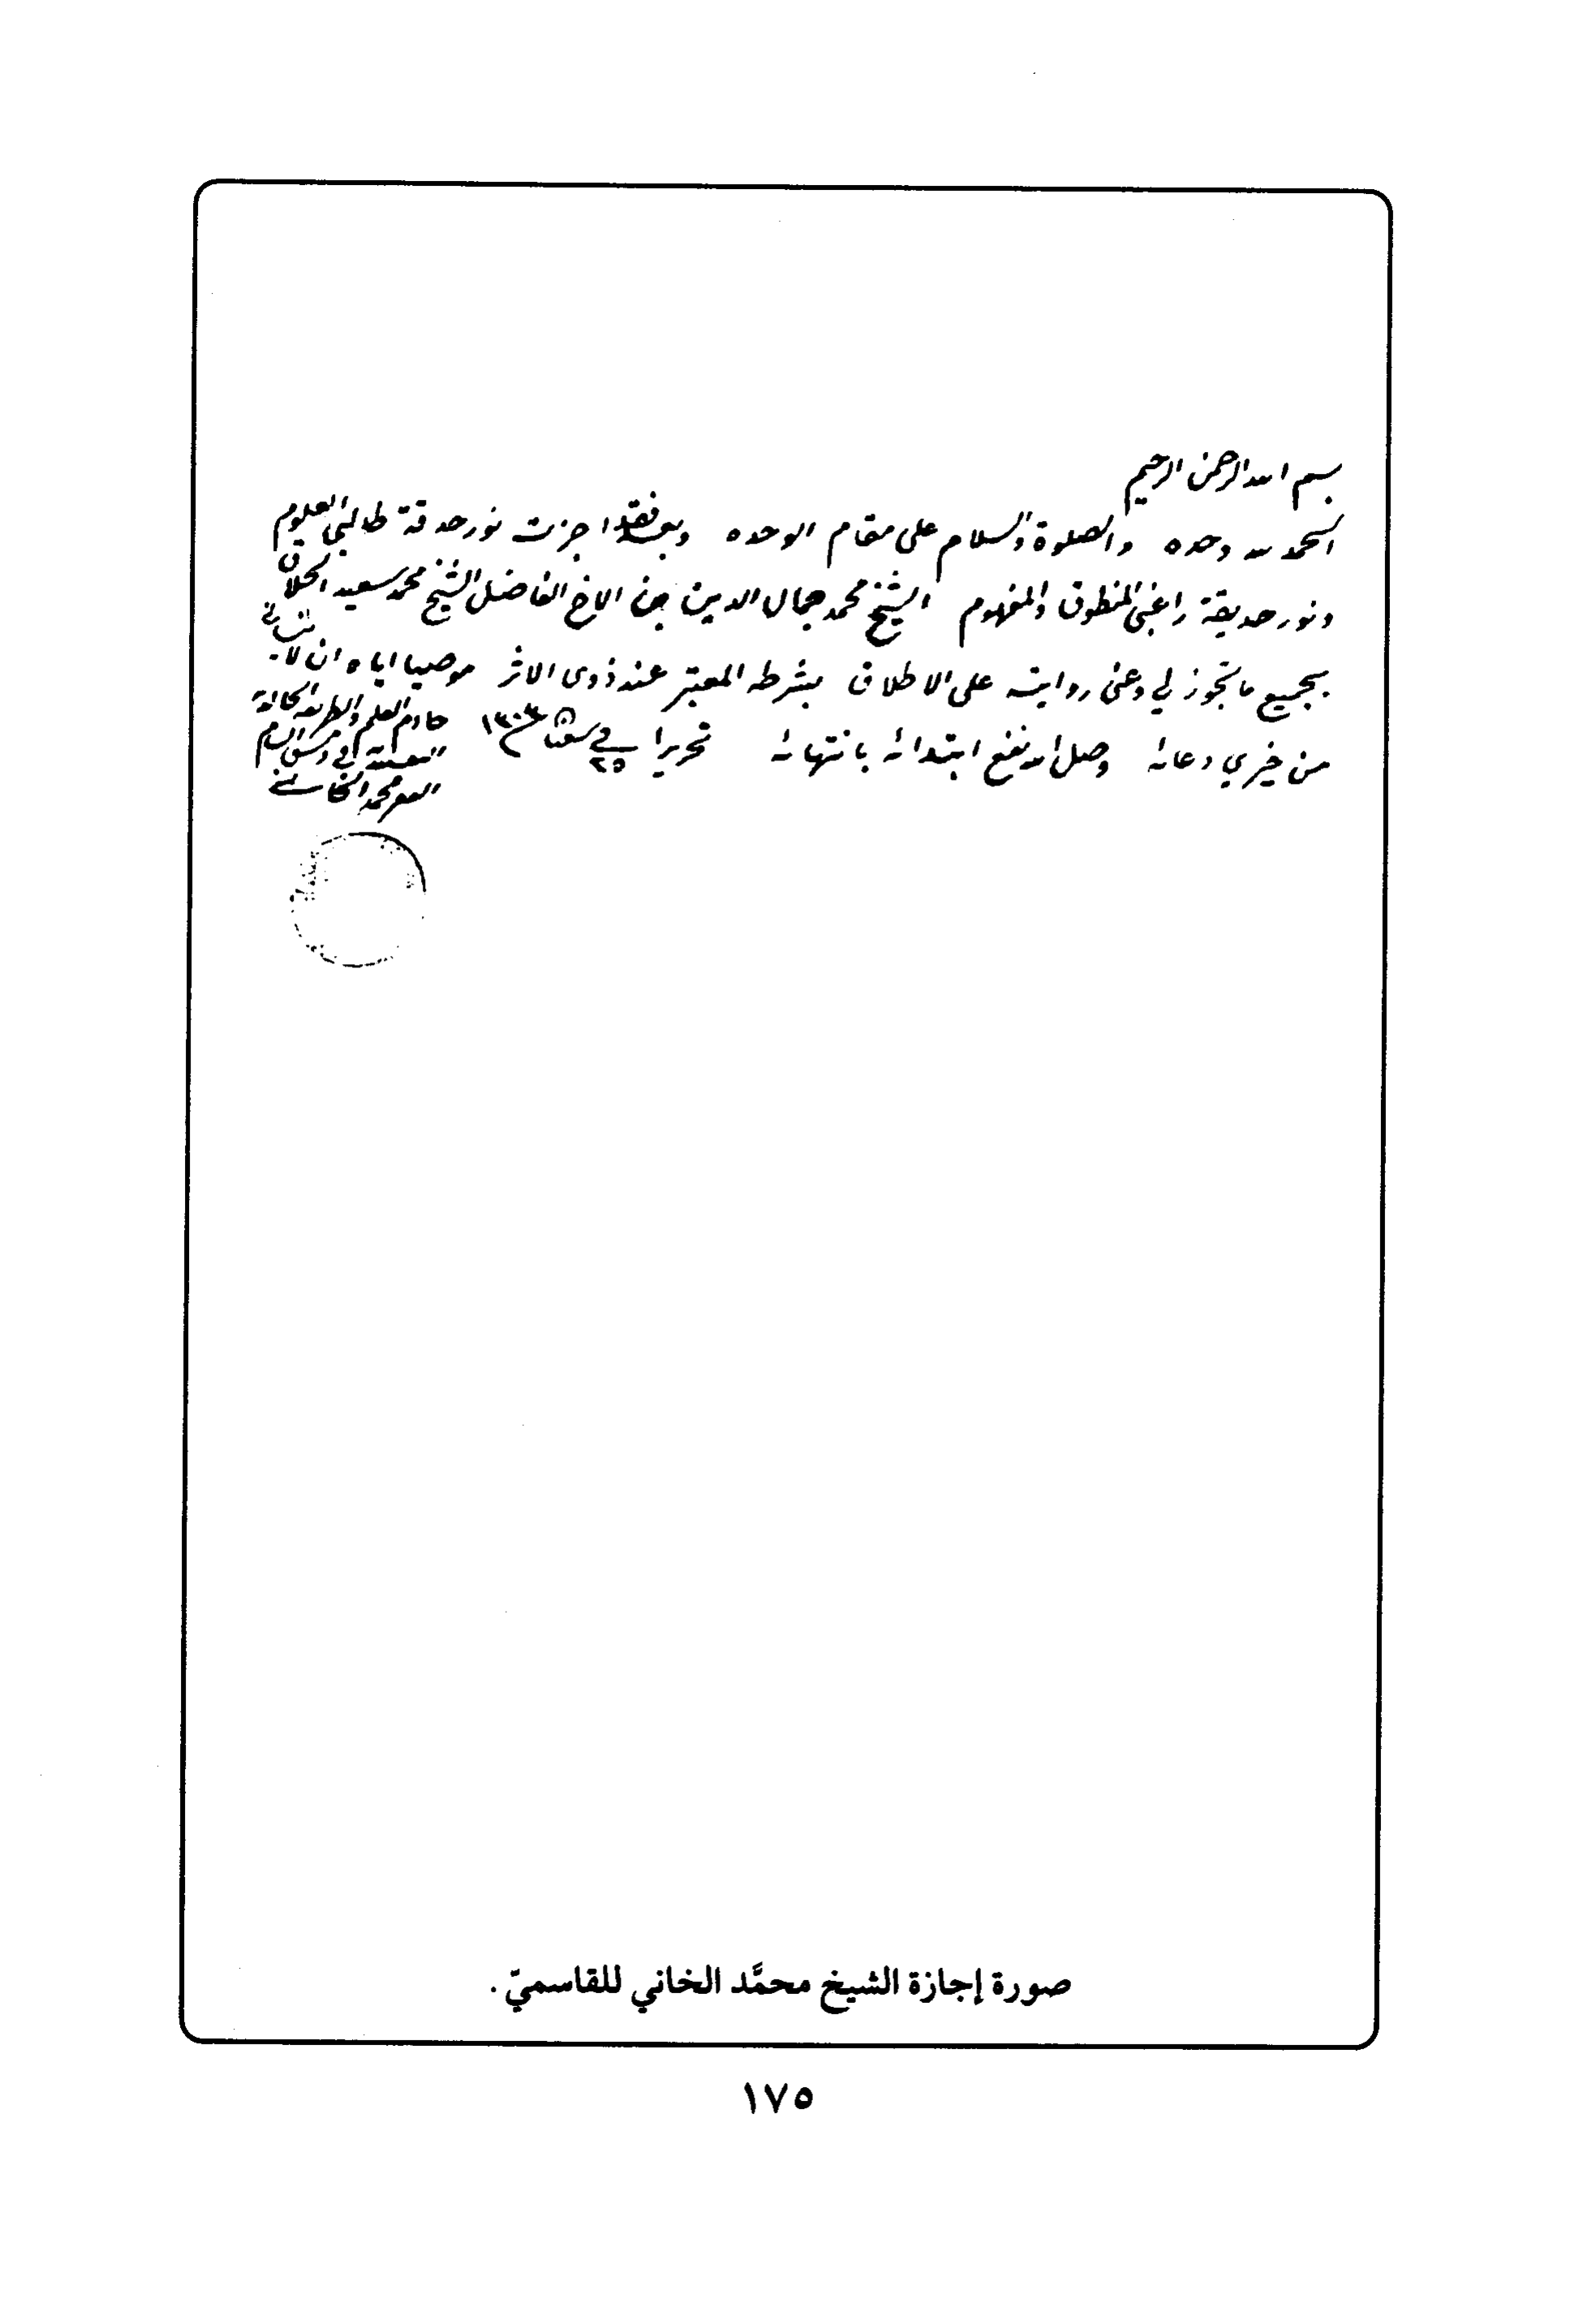 بسم الله الرحمن الرحيم
الحمد لله وحده والصلوة والسلام على مقام الوحده وبعد فقد اجزت نور حدقة طالبي العلوم
ونور حديقة راغبي المنطوق والمفهوم الشيخ محمد جمال الدين بن الاخ الفاضل الشيخ محمد سعيد الحلاق
بجميع ما تجوز لي وعني روايته على الاطلاق بشرطه المعتبر عند ذوى الاثر موصيا اياه ان لا ينساني
من خيري دعائه وصل الله نفع ابتدائه بانتهائه تحريرا في ٢٥ سنة ١٣٠٣
خادم العلم والطريقة الخالدية
في دمشق الشام
الفقير محمد الخاني
صورة إجازة الشيخ محمَّد الخاني للقاسميّ .
١٧٥